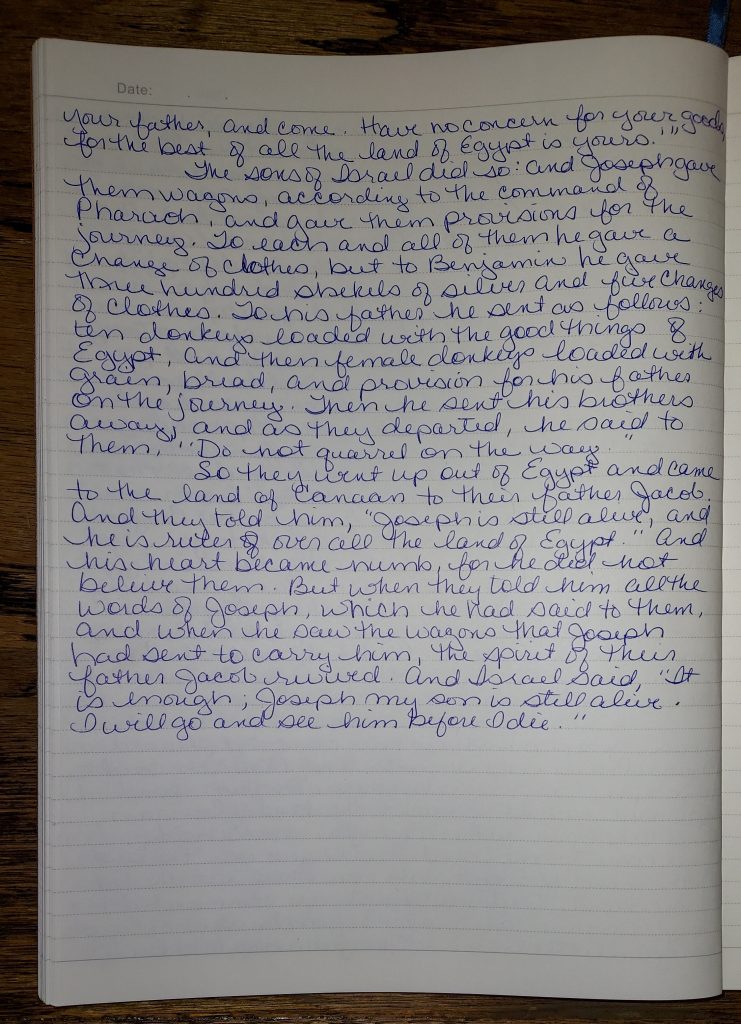 Date:
your father, and come. Have no concern for your goods,
for the best of all the land of Egypt is yours.'"
The sons of Israel did so: and Joseph gave
them wagons, according to the command of
Pharaoh, and gave them provisions for the
journey. To each and all of them he gave a
change of clothes, but to Benjamin he gave
three hundred shekels of silver and five changes
of clothes. To his father he sent as follows:
ten donkeys loaded with the good things of
Egypt, and then female donkeys loaded with
grain, bread, and provision for his father
on the journey. Then he sent his brothers
away, and as they departed, he said to
them, "Do not quarrel on the way."
So they went up out of Egypt and came
to the land of Canaan to their father Jacob.
And they told him, "Joseph is still alive, and
he is ruler over all the land of Egypt." And
his heart became numb, for he did not
beleive them. But when they told him all the
words of Joseph, which he had said to them,
and when he saw the wagons that Joseph
had sent to carry him, the spirit of their
father Jacob revived. And Israel said, "It
is enough; Joseph my son is still alive.
I will go and see him before I die."